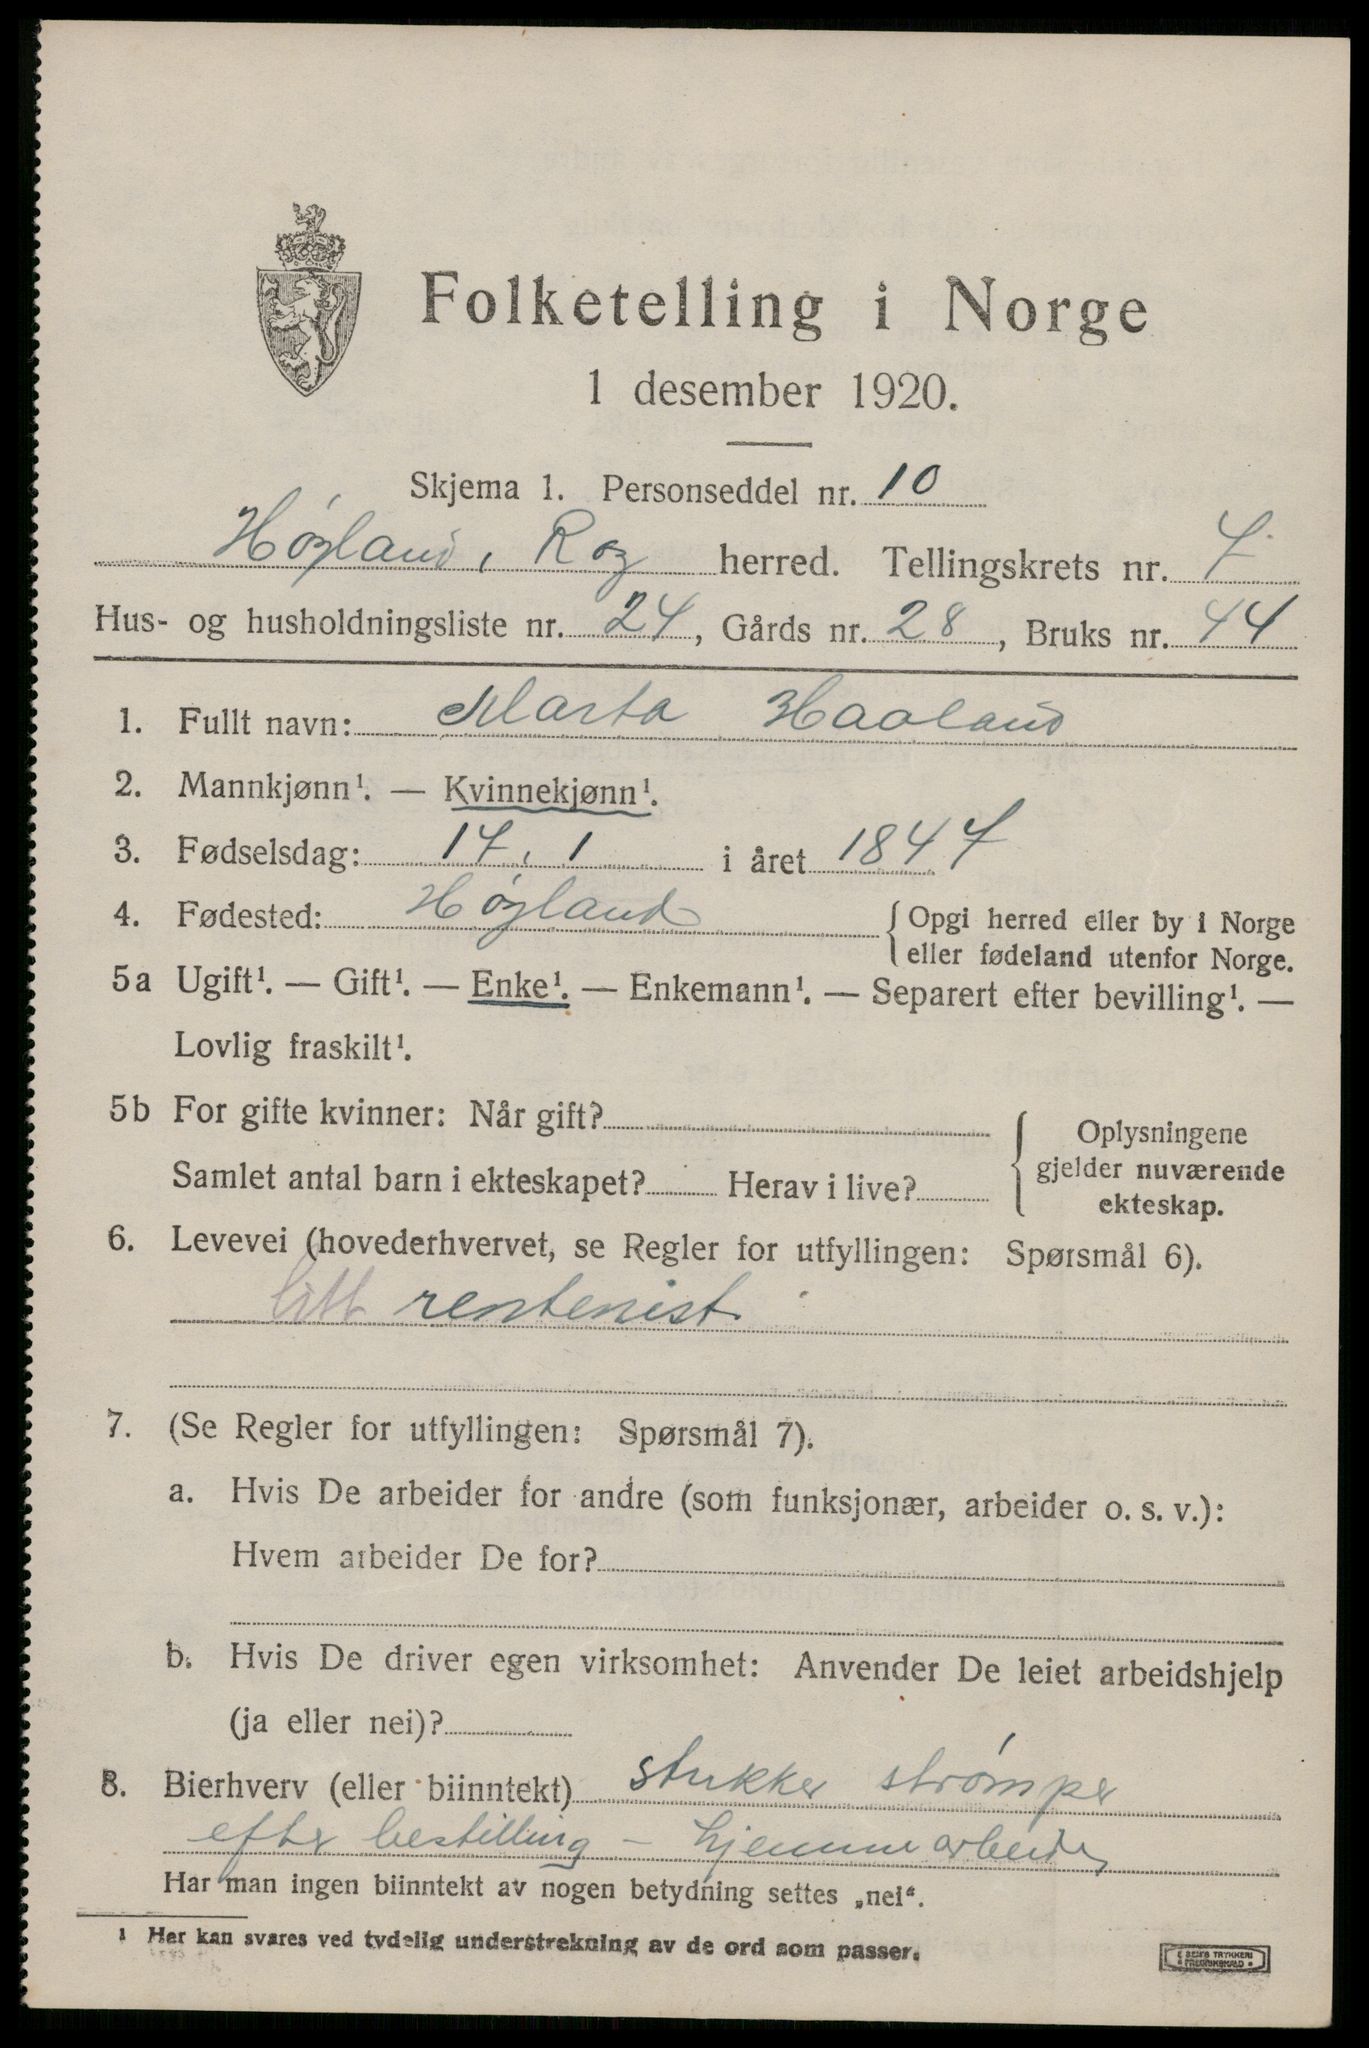 Folketelling i Norge
1 desember 1920.
Skjema 1. Personseddel nr. 10
Høyland, Rog herred. Tellingskrets nr. 7
Hus- og husholdningsliste nr. 24, Gårds nr. 28, Bruks nr. 44
1. Fullt navn: Marta Haaland
2. Mannkjønn¹. — Kvinnekjønn¹.
3. Fødselsdag: 17. 1 i året 1847
4. Fødested: Høyland {Opgi herred eller by i Norge
eller fødeland utenfor Norge.
5a Ugift¹. — Gift¹. — Enke¹. — Enkemann¹. — Separert efter bevilling¹. —
Lovlig fraskilt¹.
5b For gifte kvinner: Når gift?
Samlet antal barn i ekteskapet? Herav i live?
Oplysningene
gjelder nuværende
ekteskap.
6. Levevei (hovederhvervet, se Regler for utfyllingen: Spørsmål 6).
litt rentenist
7. (Se Regler for utfyllingen: Spørsmål 7).
a. Hvis De arbeider for andre (som funksjonær, arbeider o. s. v.):
Hvem arbeider De for?
b. Hvis De driver egen virksomhet: Anvender De leiet arbeidshjelp
(ja eller nei)?
8. Bierhverv (eller biinntekt) strikker strømper
efter bestilling – hjemmearbeide
Har man ingen biinntekt av nogen betydning settes „nei“.
1 Her kan svares ved tydelig understrekning av de ord som passer.
E. SEM'S TRYKKERI
FREDRIKSHALD